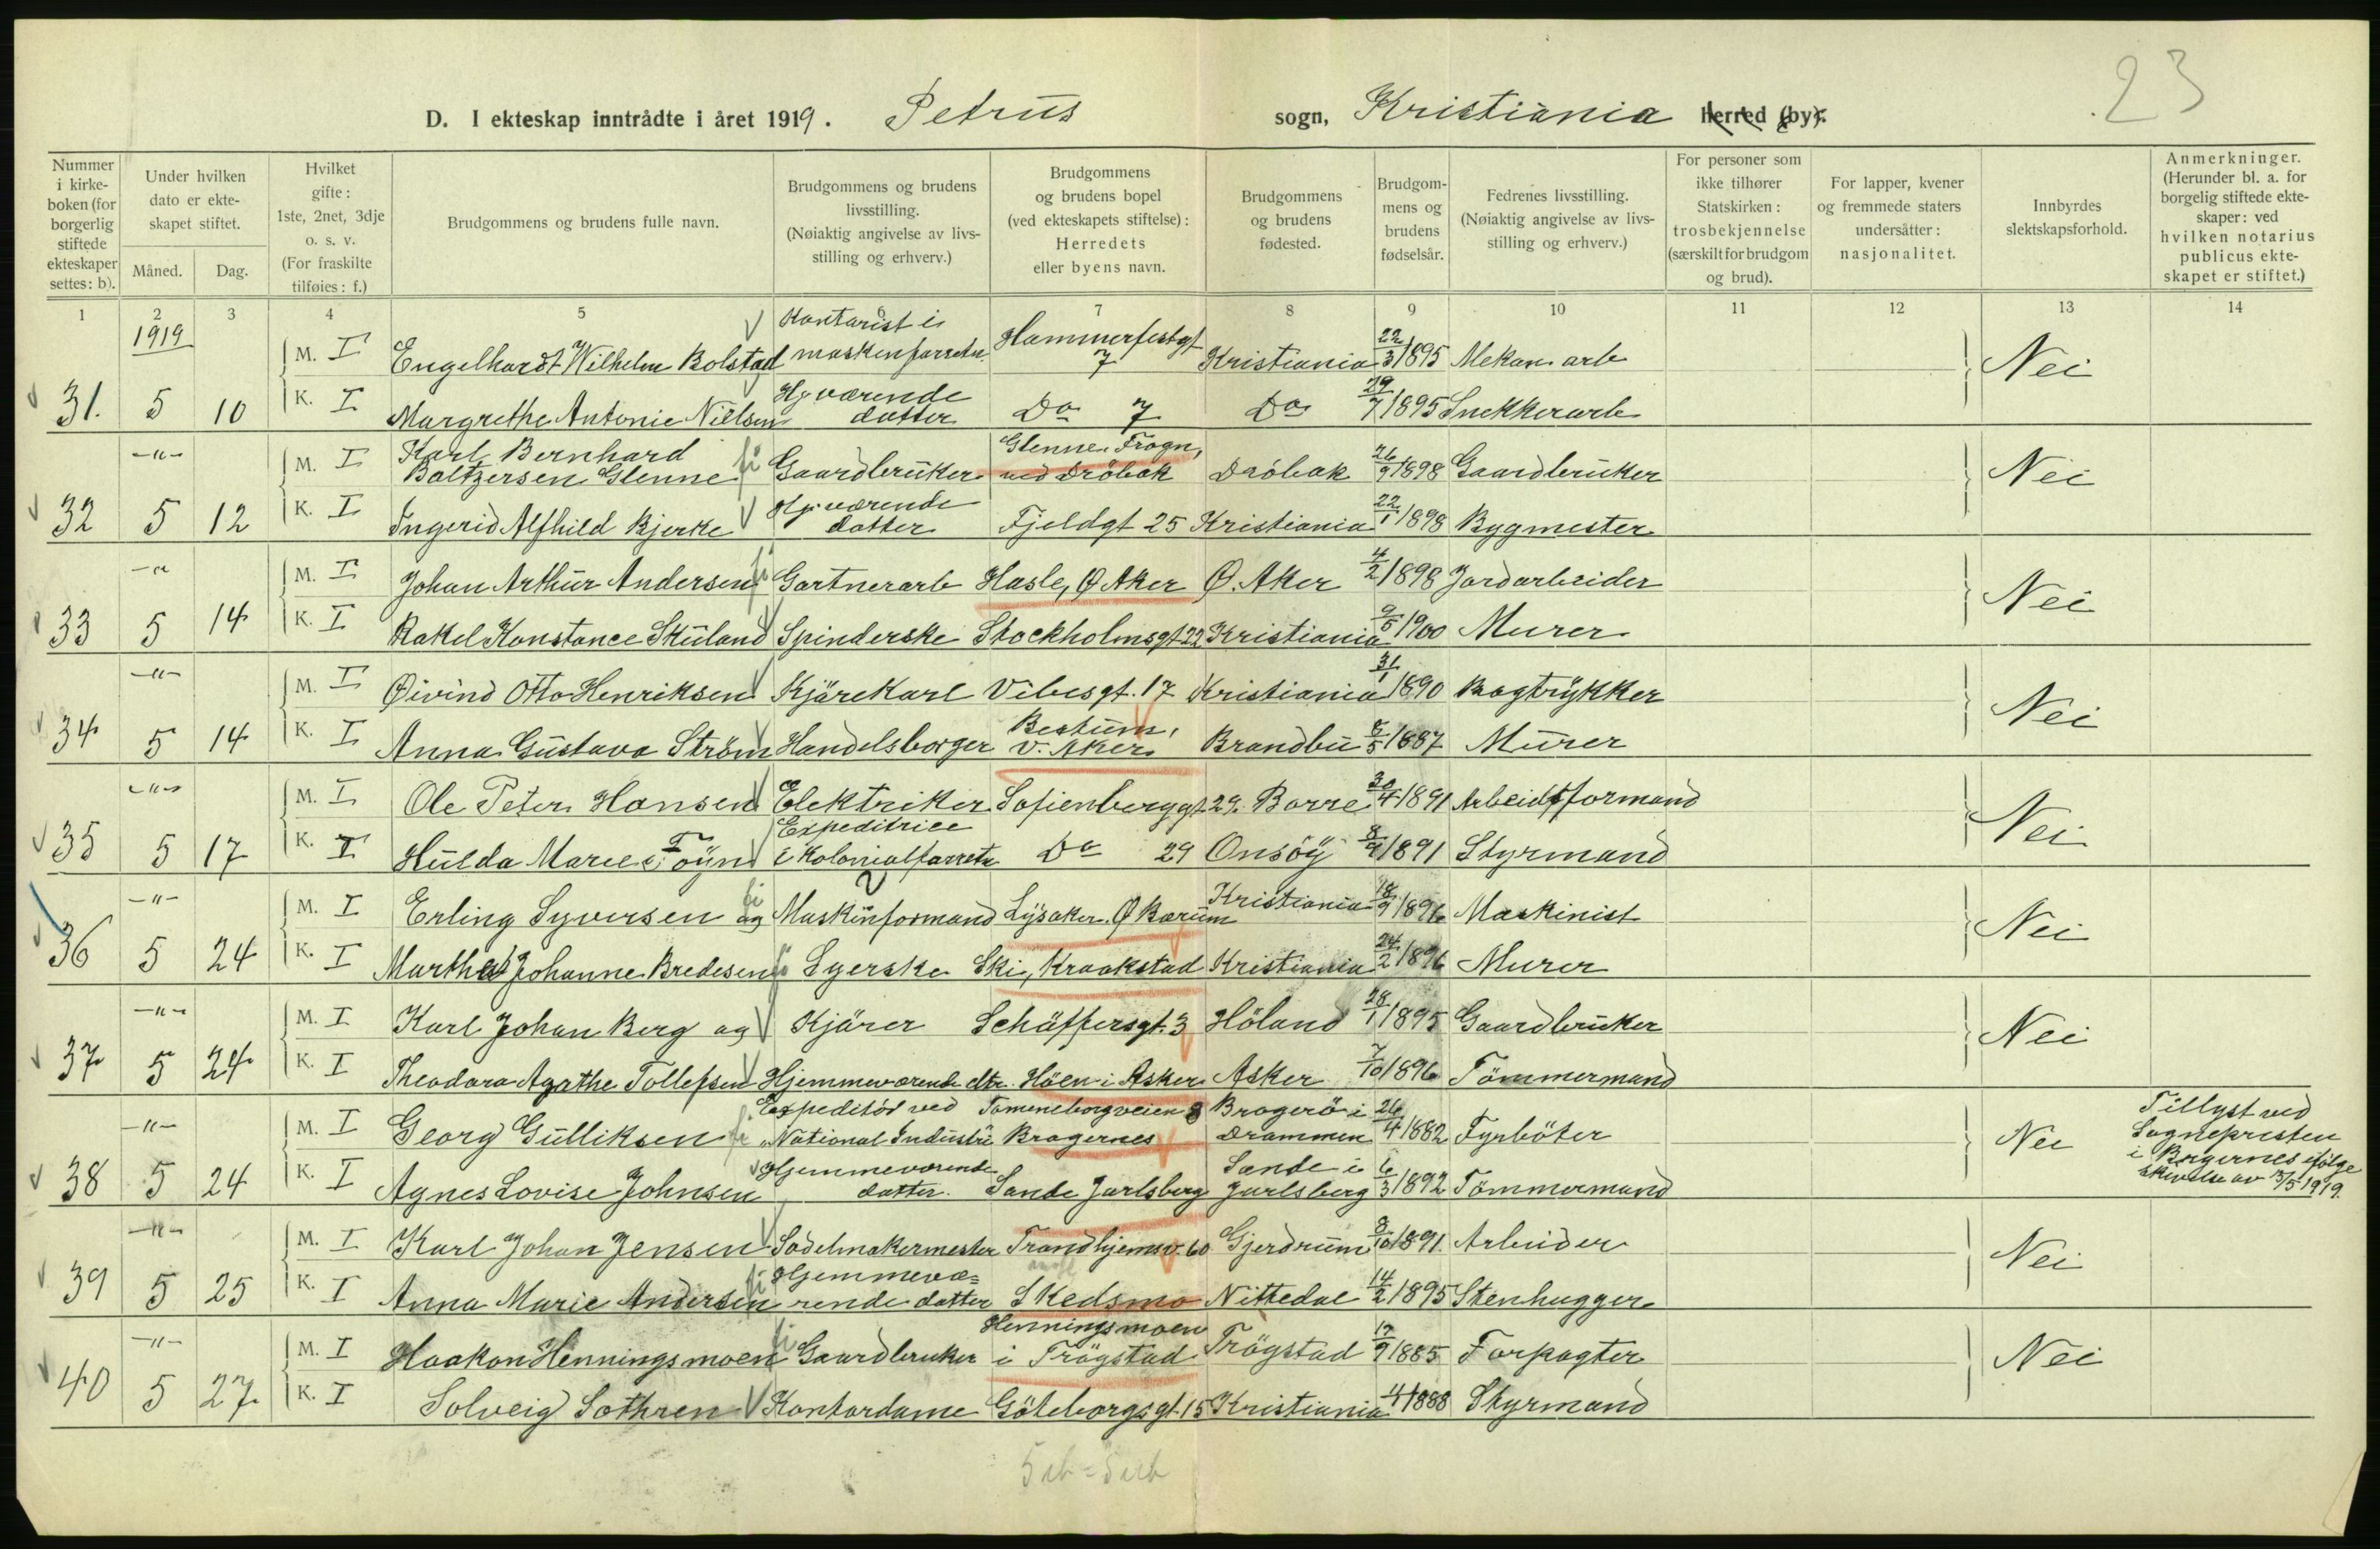 23
D. I ekteskap inntrådte i året 1919. Petrus sogn, Kristiania herred (by).
Nummer i kirkeboken (for borgerlig stiftede ekteskaper settes: b).
Under hvilken dato er ekteskapet stiftet.
Måned. Dag.
Hvilket gifte: 1ste, 2net, 3dje o. s. v. (For fraskilte tilføies: f.)
Brudgommens og brudens fulle navn.
Brudgommens og brudens livsstilling. (Nøiaktig angivelse av livsstilling og erhverv.)
Brudgommens og brudens bopel (ved ekteskapets stiftelse): Herredets eller byens navn.
Brudgommens og brudens fødested.
Brudgommens og brudens fødselsår.
Fedrenes livsstilling. (Nøiaktig angivelse av livsstilling og erhverv.)
For personer som ikke tilhører Statskirken: trosbekjennelse (særskilt for brudgom og brud).
For lapper, kvener og fremmede staters undersåtter: nasjonalitet.
Innbyrdes slektskapsforhold.
Anmerkninger. (Herunder bl. a. for borgelig stiftede ekteskaper: ved hvilken notarius publicus ekteskapet er stiftet.)
1 2 3 4 5 6 7 8 9 10 11 12 13 14
1919
M. I Engelhardt Wilhelm Bolstad Kontorist i maskinforretn. Hammerfestgt 7 Kristiania 22/3 1895 Mekan. arb Nei
31. 5 10 K. I Margrethe Antonie Nielsen Hj. værende datter Do 7 Do 29/7 1895 Snekkerarb
-"- M. I Karl Bernhard Baltzersen Glenne Gaardbruker Glenne, Frogn, ved Dröbak Dröbak 26/9 1898 Gaardbruker Nei
32 5 12 K. I Ingerid Alfhild Bjerke Hj. værende datter Fjeldgt 25 Kristiania 22/1 1898 Bygmester
-"- M. I Johan Arthur Andersen Gartnerarb Hasle, Ø Aker Ø. Aker 4/2 1898 Jordarbeider Nei
33 5 14 K. I Rakel Konstance Skuland Spinderske Stockholmsgt 22 Kristiania 9/5 1900 Murer
-"- M. I Øivind Otto Henriksen Kjörekarl Vibesgt. 17 Kristiania 31/1 1890 Bogtrykker Nei
34 5 14 K. I Anna Gustava Ström Handelsborger Bestum, V. Aker Brandbu 8/5 1887 Murer
-"- M. I Ole Peter Hansen Elektriker Sofienberggt 29. Borre 30/4 1891 Arbeidsformand Nei
35 5 17 K. I Hulda Marie Töyn Expeditrice i Kolonialforretn Do 29 Onsöy 8/4 1891 Styrmand
-"- M. I Erling Syversen og Maskinformand Lysaker. Ø Bærum Kristiania 18/9 1896 Maskinist Nei
36 5 24 K. I Martha Johanne Bredesen Syerske Ski, Kraakstad Kristiania 24/2 1896 Murer
-"- M. I Karl Johan Berg og Kjörer Schäffersgt. 3 Höland 28/1 1895 Gaardbruker Nei
37 5 24 K. I Theodora Agathe Tollefsen Hjemmeværende dtr. Höen i Asker Asker 7/10 1896 Tömmermand
-"- M. I Georg Gulliksen Expeditör ved National Industri Tomineborgveien 8 Bragernes Bragerö i Drammen 26/4 1882 Fyrböter Nei Tillyst ved Sognepresten i Bragernes ifölge skrivelse av 3/5 1919.
38 5 24 K. I Agnes Lovise Johnsen Hjemmeværende datter. Sande Jarlsberg Sande i Jarlsberg 6/3 1892 Tömmermand
-"- M. I Karl Johan Jensen Sadelmakermester Trondhjemsv. 60 Gjerdrum 8/10 1891. Arbeider Nei
39 5 25 K. I Anna Marie Andersen Hjemmeværende datter Skedsmo Nittedal 14/2 1895 Stenhugger
-"- M. I Haakon Henningsmoen Gaardbruker Henningsmoen i Trögstad Trögstad 17/9 1885 Forpagter Nei
40 5 27. K. I Solveig Sothren Kontordame Göteborgsgt. 15 Kristiania 4/1 1888 Styrmand